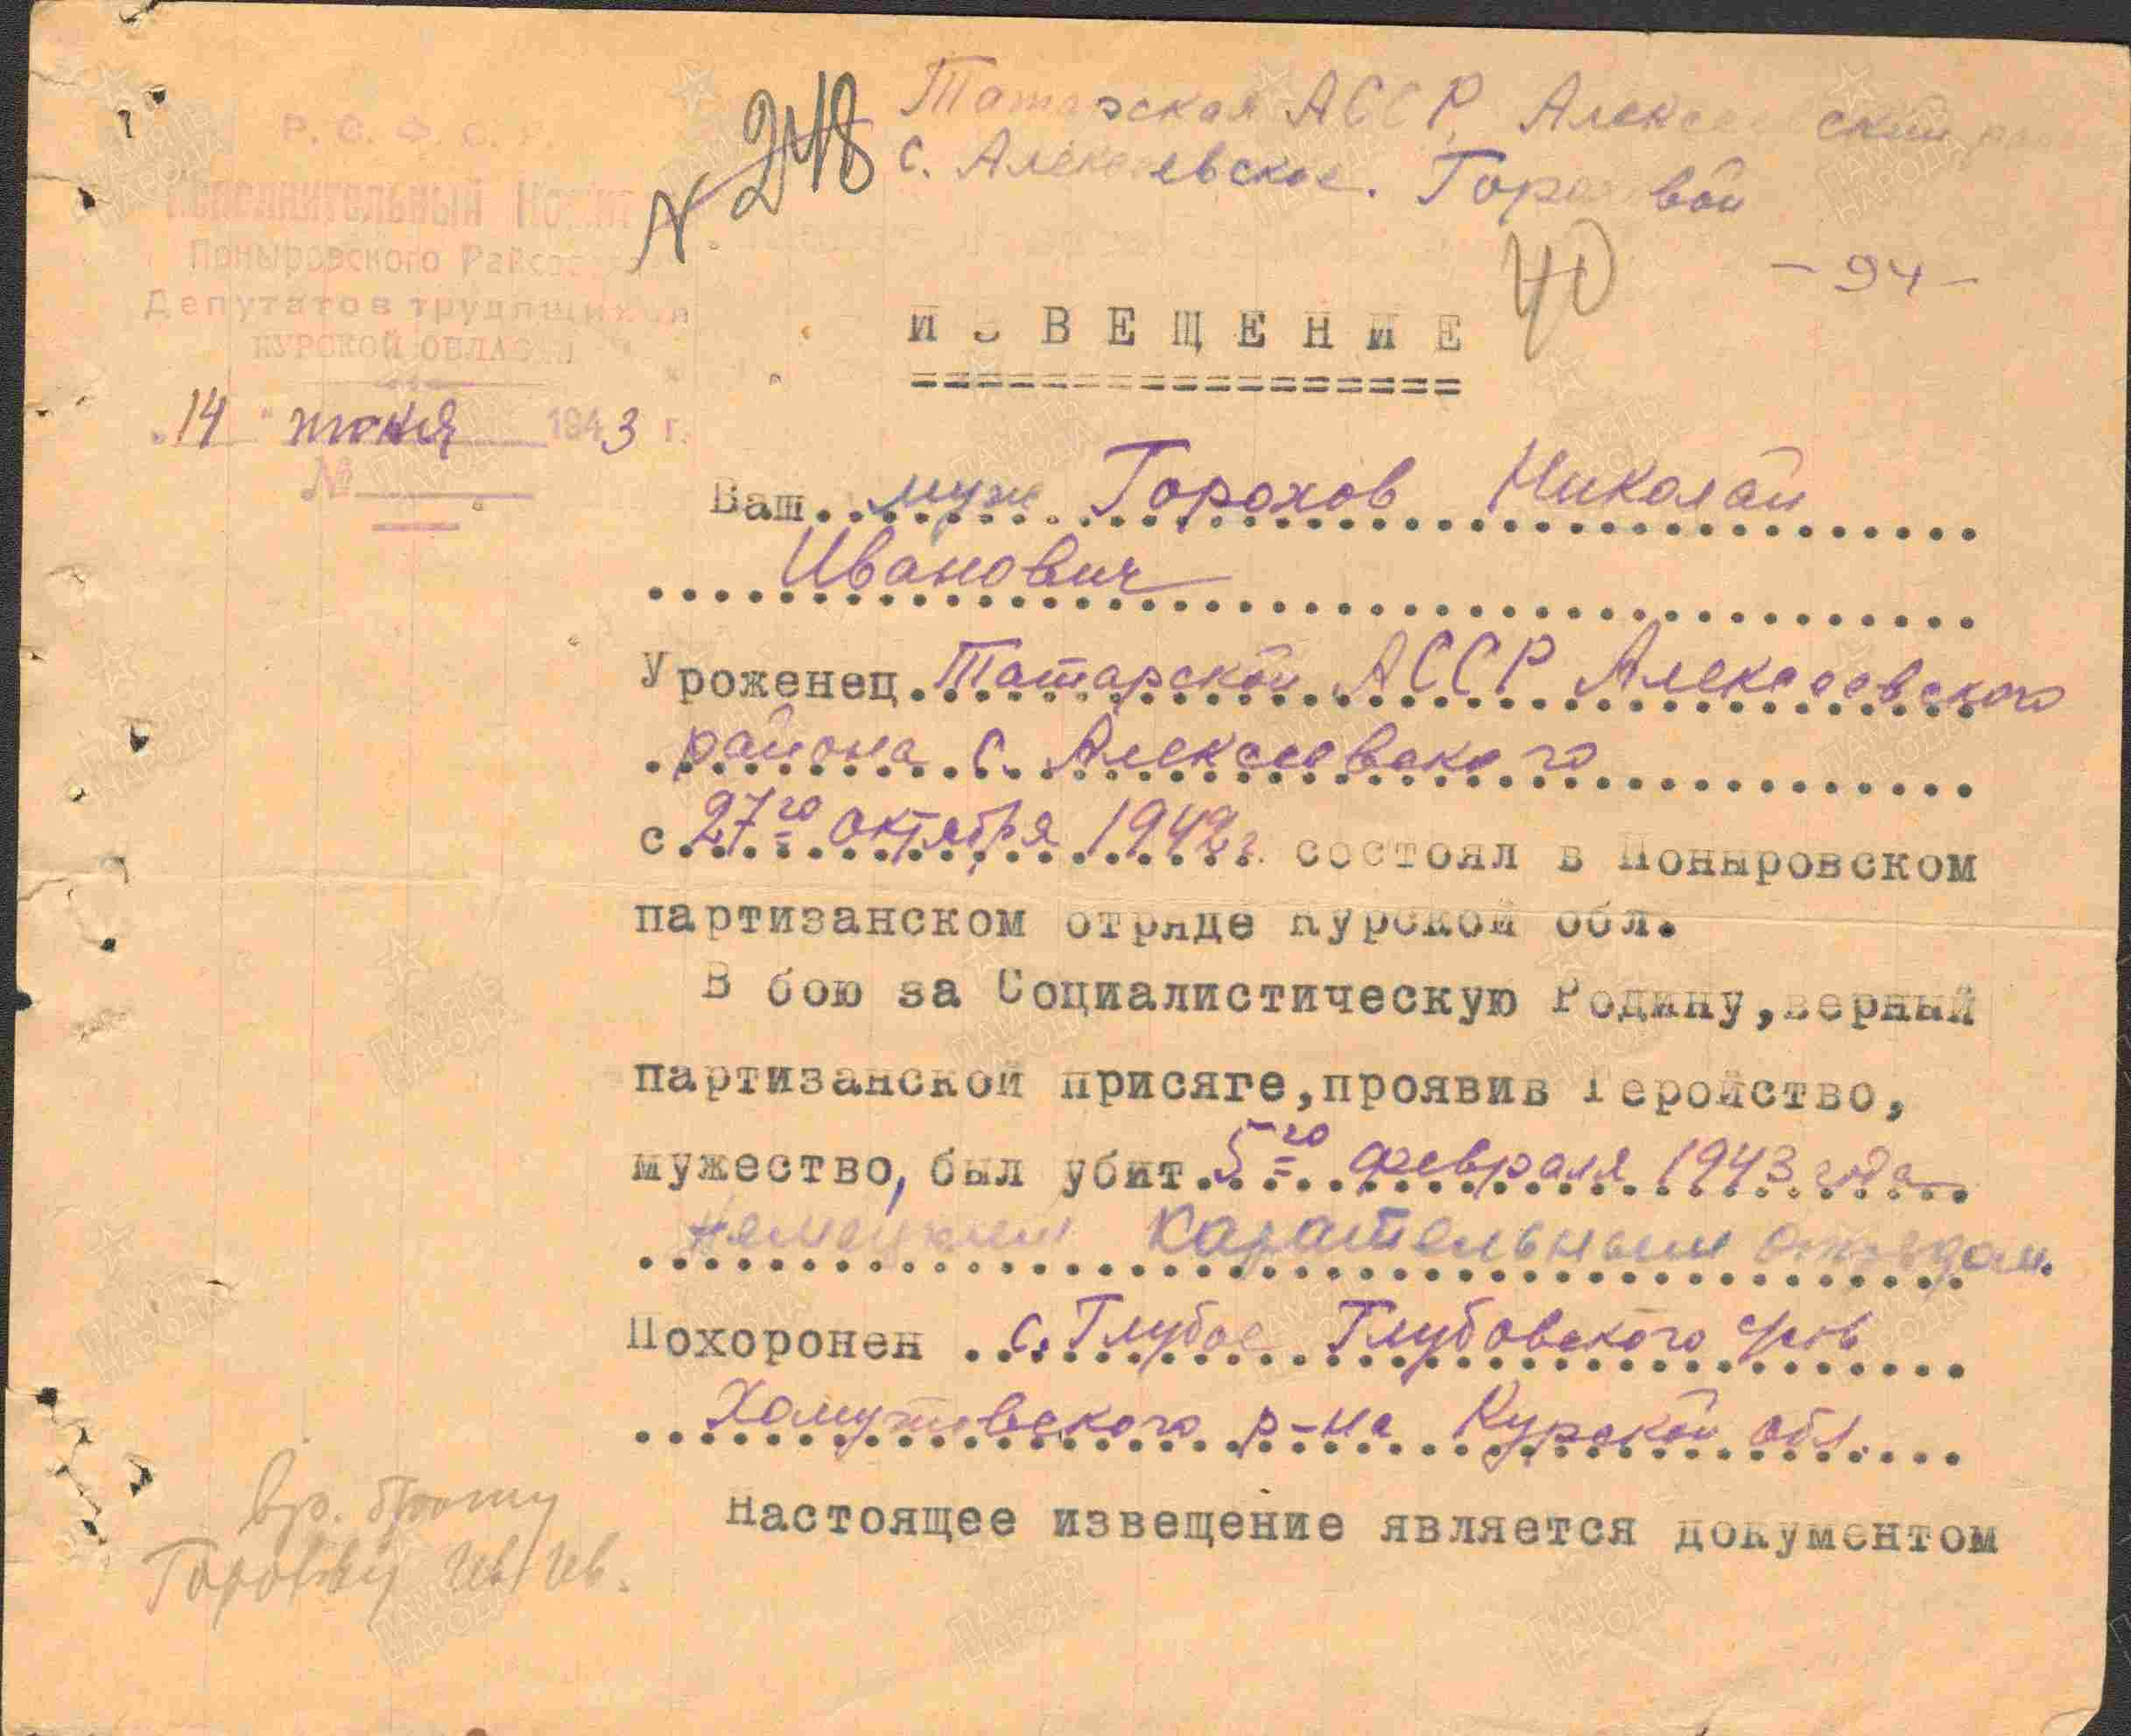 Р. С. Ф. С. Р.
Исполнительный Комитет
Поныровского Райсовета
Депутатов трудящихся
КУРСКОЙ ОБЛАСТИ
"14" июня 1943 г.
№
N 248
Татарская АССР Алексеевский
с. Алексеевское. Гороховой
40
- 94 -
ИЗВЕЩЕНИЕ
Ваш муж Горохов Николай
Иванович
Уроженец Татарской АССР Алексеевского
района с. Алексеевского
с 27го октября 1942 г. состоял в Поныровском
партизанском отряде Курской обл.
В бою за Социалистическую Родину, верный
партизанской присяге, проявив Геройство,
мужество, был убит 5го февраля 1943 года
немецким карательным отрядом.
Похоронен с. Глубое Глубовского
Хомутовского р-на Курской обл.
Настоящее извещение является документом
вр. брату
Ив. Ив.
ПАМЯТЬ НАРОДА